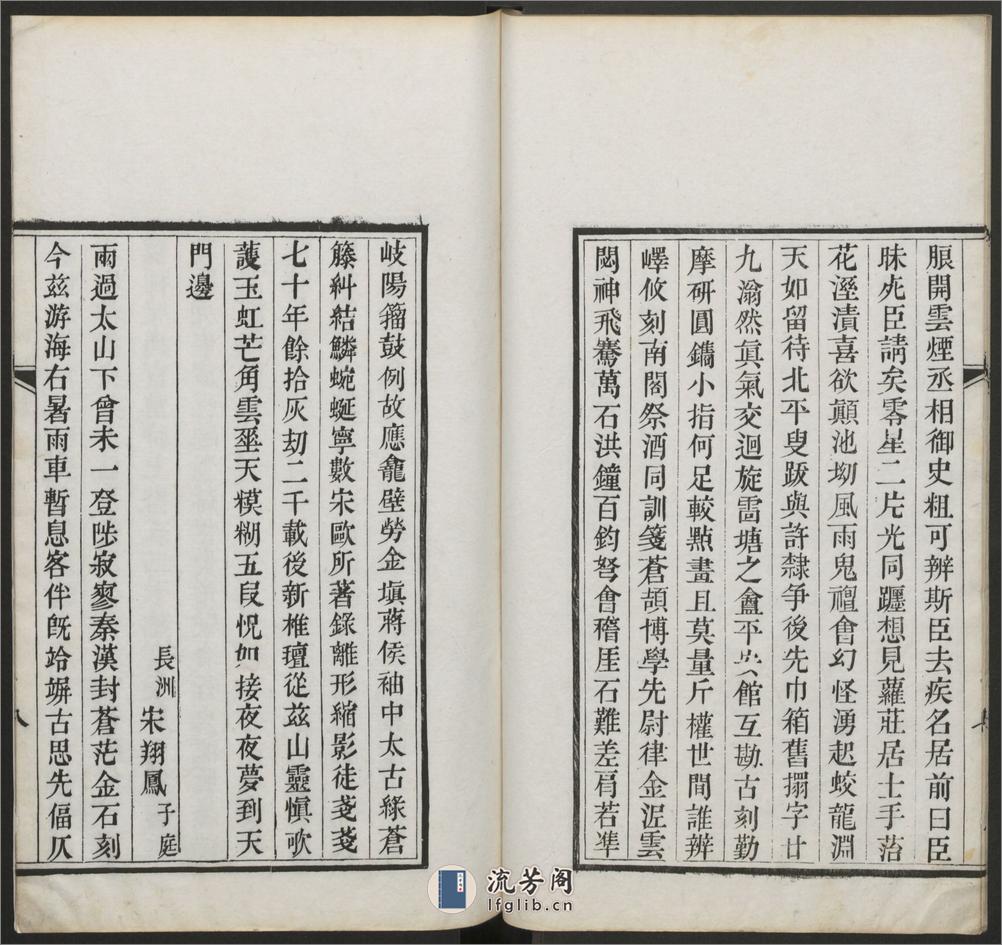 脹開雲煙丞相御史粗可辨斯臣去疾名居前曰臣
昧死臣請矣零星二片光同躔想見蘿莊居士手葢
花溼漬喜欲顛池坳風雨鬼禮會幻怪湧起蛟龍淵
天如留待北平叟跋與許隸爭後先巾箱舊搨字廿
九滃然眞氣交迴旋雷塘之盦平 館互勘古刻勤
摩研圓鐫小指何足較點畫且莫量斤權世間誰辨
嶧攸刻南閣祭酒同訓箋蒼頡博學先尉律金泥雲
閟神飛騫萬石洪鐘百鈞弩會稽厓石難差肩若準
岐陽籀鼓例故應龕壁勞金塡蔣侯袖中太古綠蒼
籐糾結鱗蜿蜒寧數宋歐所著錄離形縮影徒戔戔
七十年餘拾灰刼二千載後新椎璮從茲山靈愼呵
護玉虹芒角雲埀天模糊五段怳如接夜夜夢到天
門邊
長洲 宋翔鳳 子庭
雨過太山下曾未一登陟寂寥秦漢封蒼茫金石刻
今茲游海右暑雨車暫息客伴旣跲塀古思先偪仄
八
流芳阁
lfglib.cn